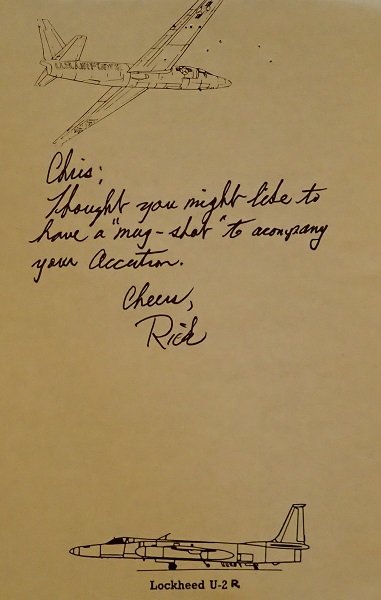 U.S. AIR FORCE
Chris;
Thought you might like to
have a "mug-shot" to acompany
your Accution.
Cheers,
Rick
Lockheed U-2R